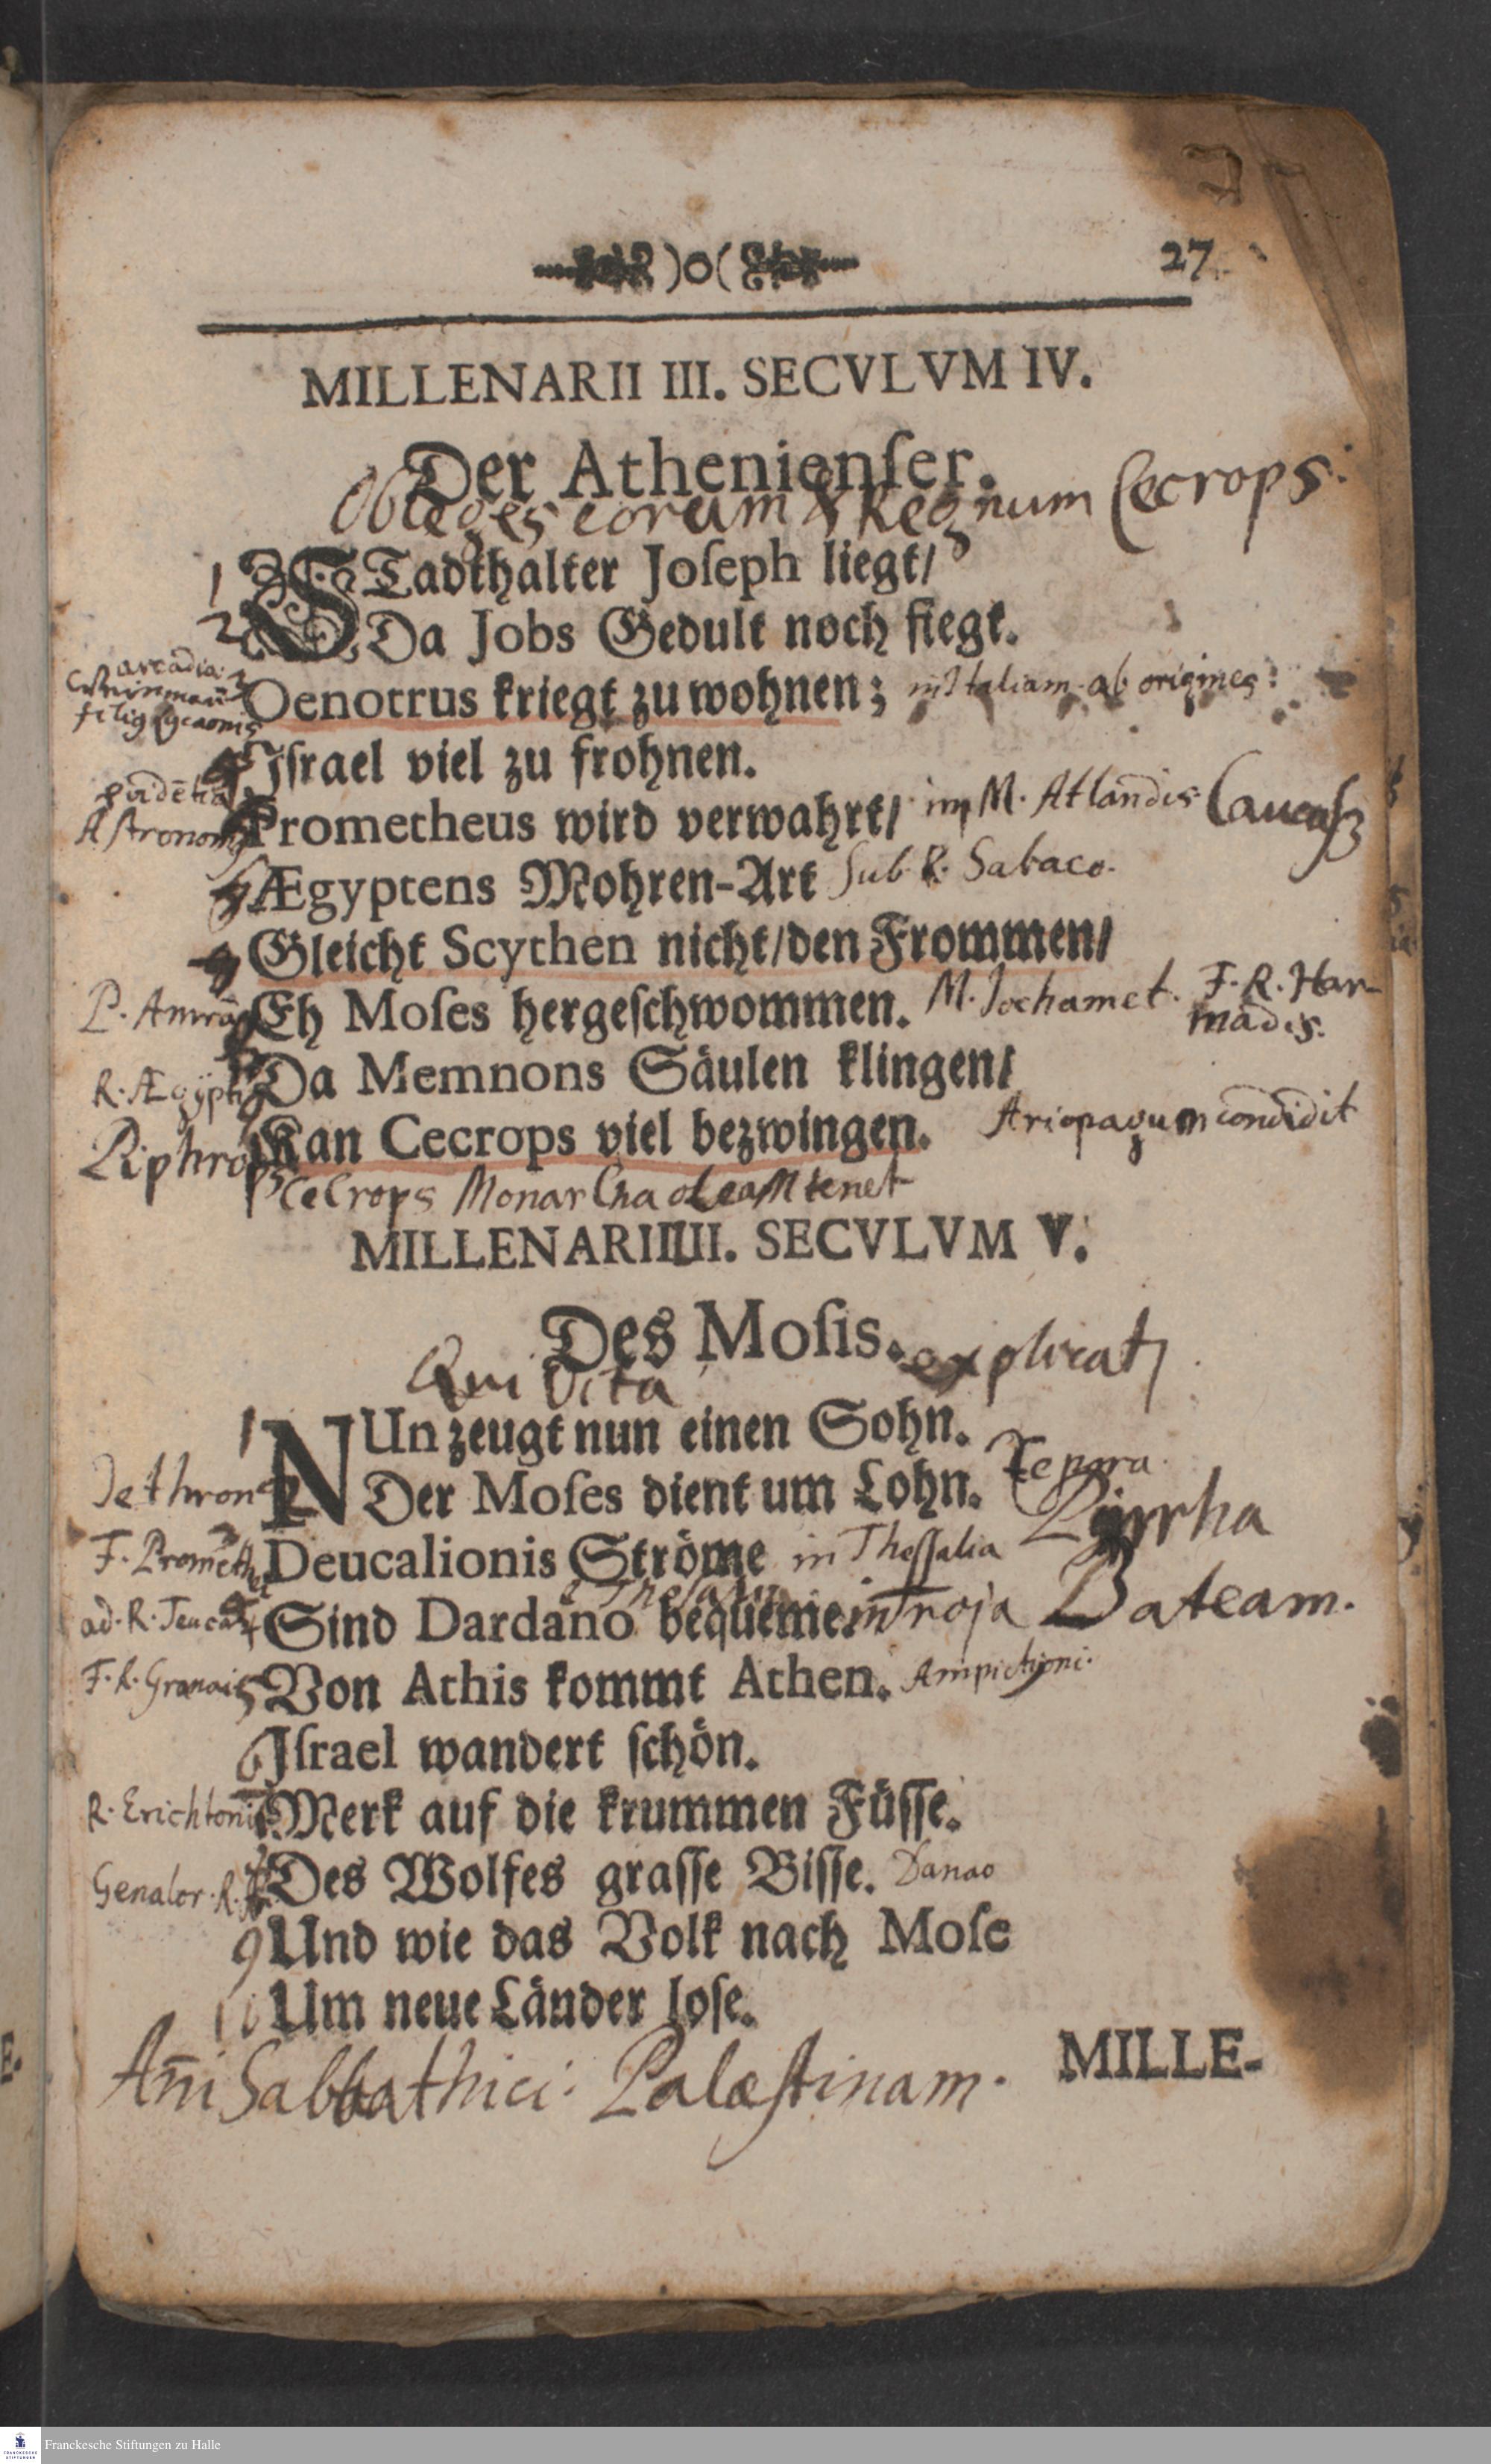 )o( 27
MILLENARII III. SECVLVM IV.
Der Athenienſer.
Ob leges eorum & Regnum Cecrops.
1 STadthalter Joſeph liegt/
2 Da Jobs Gedult noch ſiegt.
arcadia
Oenotrus kriegt zu wohnen; in Italiam. ab origines:
4 Iſrael viel zu frohnen.
Astronom
Prometheus wird verwahrt/ in M. Atlandis
Ægyptens Mohren-Art Sub. R. Sabaco.
Gleicht Scythen nicht/den Frommen/
P. Amrã Eh Moſes hergeſchwommen. M. Jochamet. F. R. Har-
madis.
R. Ægypti Da Memnons Säulen klingen/
Kan Cecrops viel bezwingen. Ariopagum condidit
Cecrops tenet
MILLENARII III. SECVLVM V.
Des Moſis. explicatꝫ
Qui Vita
1 NUn zeugt nun einen Sohn.
Jethrone Der Moſes dient um Lohn.
F. Promethei Deucalionis Ströme in Theſſalia Pyrrha
ad. R. Sind Dardano bequeme. in Troja Bateam.
F. R. 5 Von Athis kommt Athen. Ampictyoni.
6 Iſrael wandert ſchön.
R. Erichtoni Merk auf die krummen Füſſe.
Genalor. R. Des Wolfes graſſe Biſſe. Danao
9 Und wie das Volk nach Moſe
10 Um neue Länder loſe.
Añi Sabbathici. Palæstinam.
MILLE-
Franckesche Stiftungen zu Halle